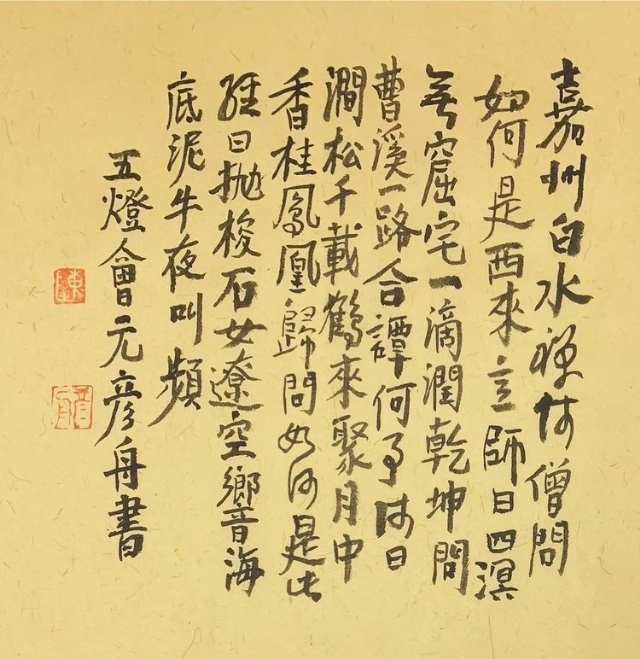 嘉州白水禪師僧問
如何是西來意師曰四溟
無窟宅一滴潤乾坤問
曹溪一路合譚何事師曰
澗松千載鶴來聚月中
香桂鳳凰歸問如何是此
經曰拋梭石女遼空響海
底泥牛夜叫頻
五燈會元彥舟書
陳